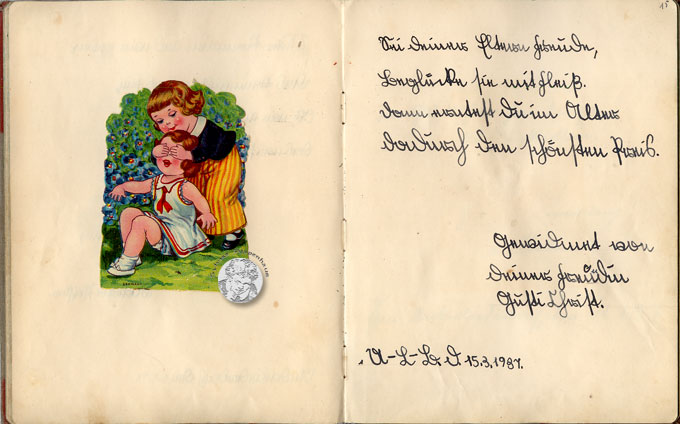 15
Sei deiner Eltern Freude,
beglücke sie mit Fleiß.
dann erntest du im Alter
dadurch den schönsten Preis.
Gewidmet von
deiner Freundin
Gusti Christ.
d. 15.3.1937.